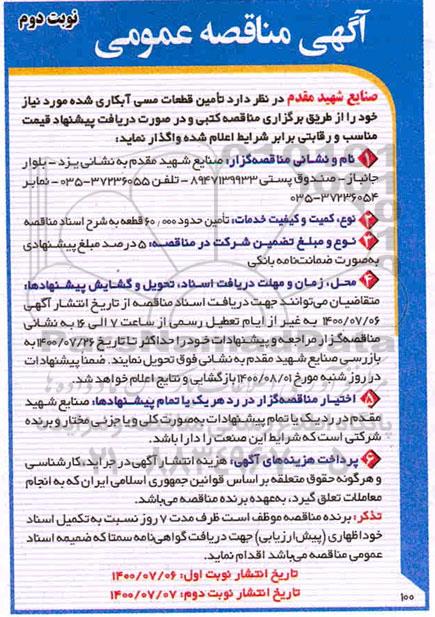 نوبت دوم
آگهی مناقصه عمومی
صنایع شهید مقدم در نظر دارد تأمین قطعات مسی آبکاری شده مورد نیاز
خود را از طریق برگزاری مناقصه کتبی و در صورت دریافت پیشنهاد قیمت
مناسب و رقابتی برابر شرایط اعلام شده واگذار نماید:
۱ نام و نشانی مناقصه‌گزار: صنایع شهید مقدم به نشانی یزد - بلوار
جانباز - صندوق پستی ۸۹۴۷۱۳۹۹۳۳ - تلفن ۳۷۲۳۶۰۵۵-۰۳۵ - نمابر
۳۷۲۳۶۰۵۴-۰۳۵
۲ نوع، کمیت و کیفیت خدمات: تأمین حدود ۶۰/۰۰۰ قطعه به شرح اسناد مناقصه
۳ نوع و مبلغ تضمین شرکت در مناقصه: ۵ درصد مبلغ پیشنهادی
به‌صورت ضمانت‌نامه بانکی
۴ محل، زمان و مهلت دریافت اسناد، تحویل و گشایش پیشنهادها:
متقاضیان می‌توانند جهت دریافت اسناد مناقصه از تاریخ انتشار آگهی
۱۴۰۰/۰۷/۰۶ به غیر از ایام تعطیل رسمی از ساعت ۷ الی ۱۶ به نشانی
مناقصه‌گزار مراجعه و پیشنهادات خود را حداکثر تا تاریخ ۱۴۰۰/۰۷/۲۶ به
بازرسی صنایع شهید مقدم به نشانی فوق تحویل نمایند. ضمنا پیشنهادات
در روز شنبه مورخ ۱۴۰۰/۰۸/۰۱ بازگشایی و نتایج اعلام خواهد شد.
۵ اختیار مناقصه‌گزار در رد هر یک یا تمام پیشنهادها: صنایع شهید
مقدم در رد یک یا تمام پیشنهادات به‌صورت کلی و یا جزئی مختار و برنده
شرکتی است که شرایط این صنعت را دارا باشد.
۶ پرداخت هزینه‌های آگهی: هزینه انتشار آگهی در جراید، کارشناسی
و هرگونه حقوق متعلقه بر اساس قوانین جمهوری اسلامی ایران که به انجام
معاملات تعلق گیرد، به‌عهده برنده مناقصه می‌باشد.
تذکر: برنده مناقصه موظف است ظرف مدت ۷ روز نسبت به تکمیل اسناد
خوداظهاری (پیش‌ارزیابی) جهت دریافت گواهی‌نامه سمتا که ضمیمه اسناد
عمومی مناقصه می‌باشد اقدام نماید.
تاریخ انتشار نوبت اول: ۱۴۰۰/۰۷/۰۶
تاریخ انتشار نوبت دوم: ۱۴۰۰/۰۷/۰۷
۱۰۰